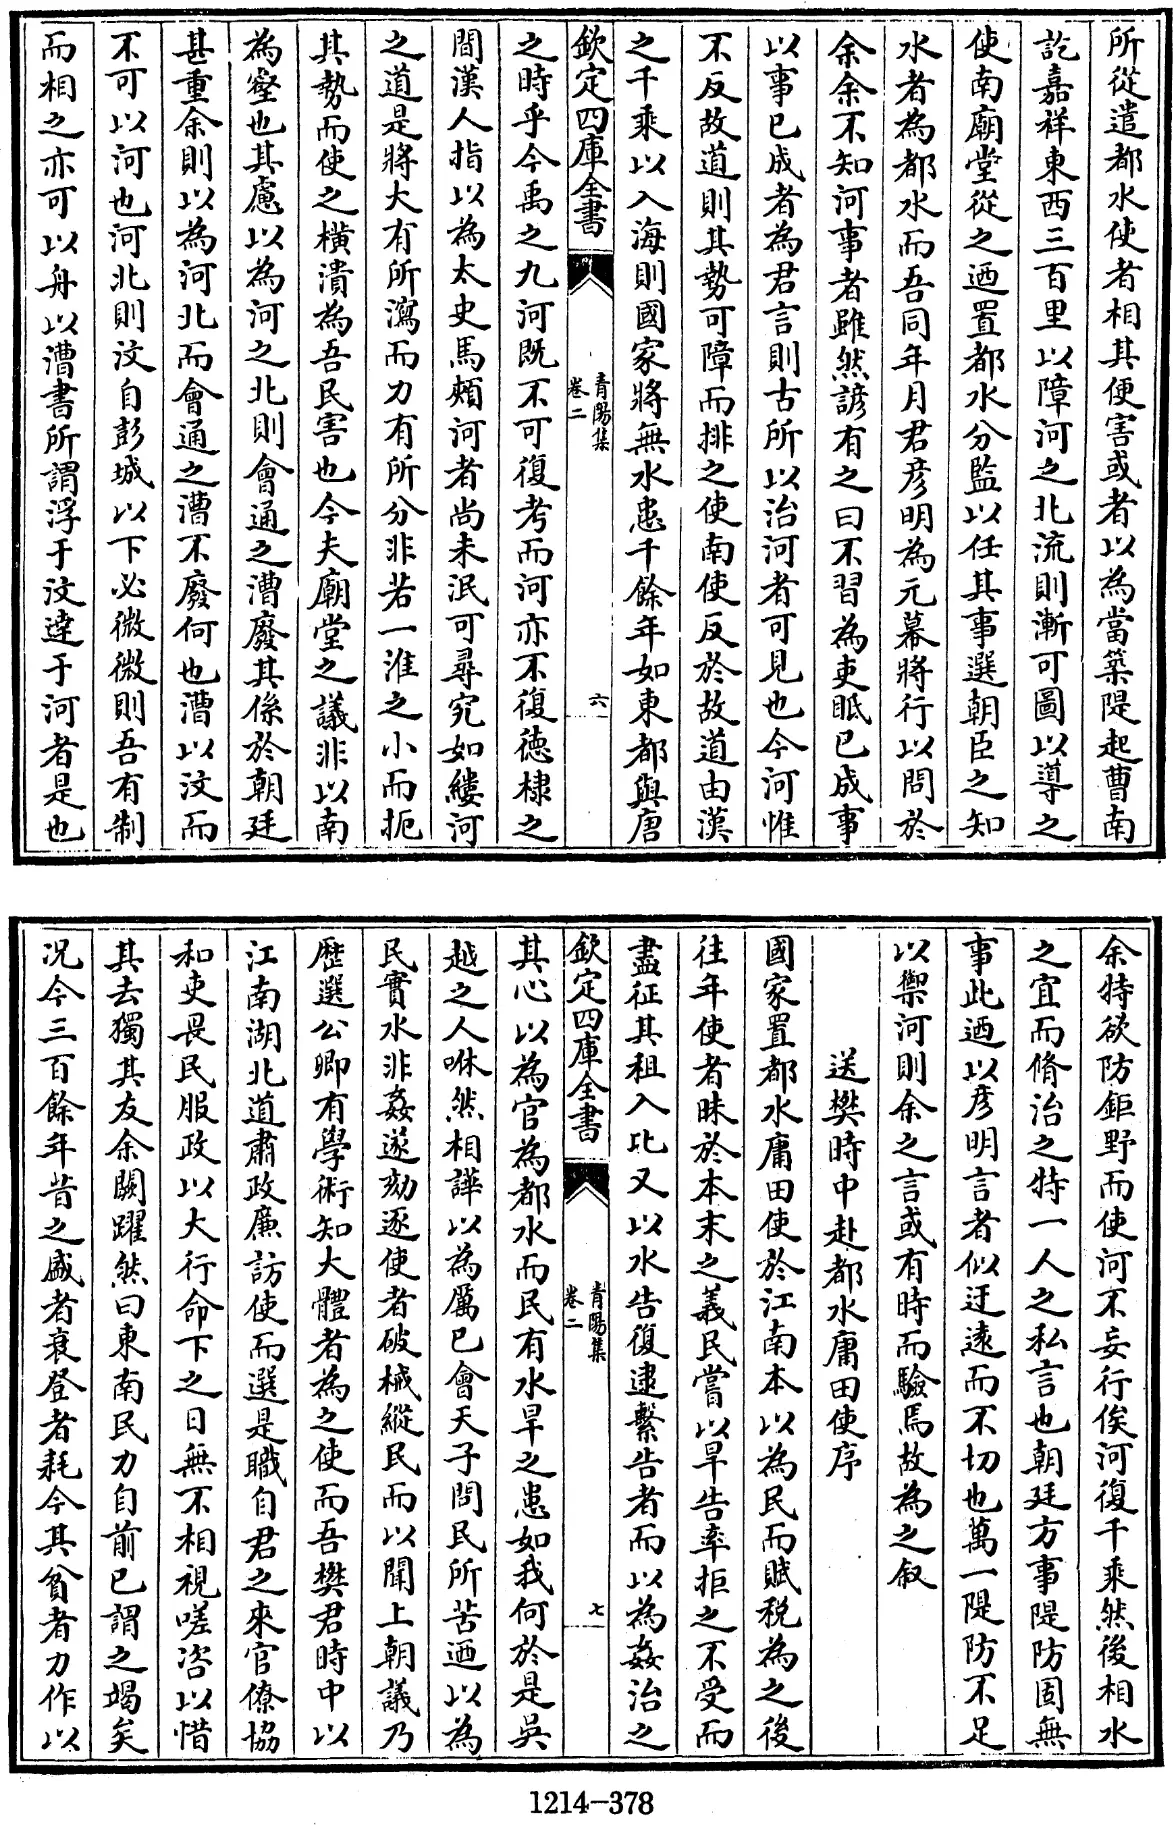 所從遣都水使者相其便害或者以為當築隄起曹南
訖嘉祥東西三百里以障河之北流則漸可圖以導之
使南廟堂從之迺置都水分監以任其事選朝臣之知
水者為都水而吾同年月君彦明為元幕將行以問於
余余不知河事者雖然諺有之曰不習為吏眡已成事
以事已成者為君言則古所以治河者可見也今河惟
不反故道則其勢可障而排之使南使反於故道由漢
之千乘以入海則國家將無水患千餘年如東都與唐
欽定四庫全書
青陽集
卷二
六
之時乎今禹之九河既不可復考而河亦不復德棣之
間漢人指以為太史馬頰河者尚未泯可尋究如縷河
之道是將大有所瀉而力有所分非若一淮之小而扼
其勢而使之橫潰為吾民害也今夫廟堂之議非以南
為壑也其慮以為河之北則會通之漕廢其係於朝廷
甚重余則以為河北而會通之漕不廢何也漕以汶而
不可以河也河北則汶自彭城以下必微微則吾有制
而相之亦可以舟以漕書所謂浮于汶達于河者是也
余特欲防鉅野而使河不妄行俟河復千乘然後相水
之宜而脩治之特一人之私言也朝廷方事隄防固無
事此迺以彦明言者似迂遠而不切也萬一隄防不足
以禦河則余之言或有時而驗焉故為之叙
送樊時中赴都水庸田使序
國家置都水庸田使於江南本以為民而賦税為之後
往年使者昧於本末之義民嘗以旱告率拒之不受而
盡征其租入比又以水告復逮繫告者而以為姦治之
欽定四庫全書
青陽集
卷二
七
其心以為官為都水而民有水旱之患如我何於是吳
越之人咻然相譁以為厲已會天子問民所苦迺以為
民實水非姦遂劾逐使者破械縱民而以聞上朝議乃
歴選公卿有學術知大體者為之使而吾樊君時中以
江南湖北道肅政亷訪使而選是職自君之來官僚協
和吏畏民服政以大行命下之日無不相視嗟咨以惜
其去獨其友余闕躍然曰東南民力自前已謂之竭矣
况今三百餘年昔之盛者衰登者耗今其貧者力作以
1214-378